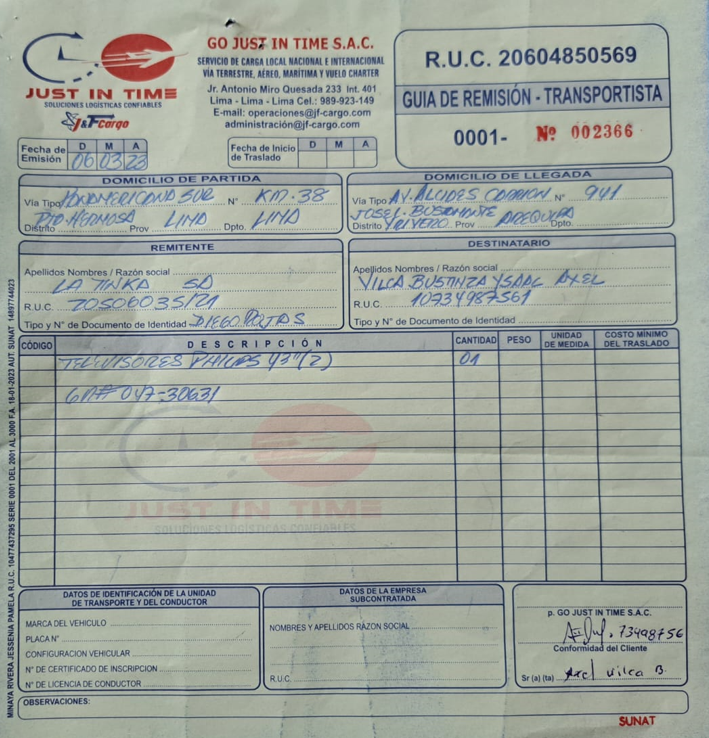 JUST IN TIME
SOLUCIONES LOGÍSTICAS CONFIABLES
J&F Cargo
GO JUST IN TIME S.A.C.
SERVICIO DE CARGA LOCAL NACIONAL E INTERNACIONAL
VÍA TERRESTRE, AÉREO, MARÍTIMA Y VUELO CHARTER
Jr. Antonio Miro Quesada 233 Int. 401
Lima - Lima - Lima Cel.: 989-923-149
E-mail: operaciones@jf-cargo.com
administración@jf-cargo.com
R.U.C. 20604850569
GUIA DE REMISIÓN - TRANSPORTISTA
0001- Nº 002366
Fecha de Emisión D M A
06 03 23
Fecha de Inicio de Traslado D M A
DOMICILIO DE PARTIDA
Vía Tipo PANAMERICANA SUR N° KM. 38
PTO. HERMOSA LIMA LIMA
Distrito Prov Dpto.
DOMICILIO DE LLEGADA
Vía Tipo AV. ALCIDES CARRION N° 941
JOSE L. BUSTAMANTE
Distrito Y RIVERO Prov AREQUIPA Dpto.
REMITENTE
Apellidos Nombres / Razón social
LA TINKA SA
R.U.C. 20506035121
Tipo y N° de Documento de Identidad DIEGO ROJAS
DESTINATARIO
Apellidos Nombres / Razón social
VILCA BUSTINZA YSAAC AXEL
R.U.C. 10734987561
Tipo y N° de Documento de Identidad
CÓDIGO DESCRIPCIÓN CANTIDAD PESO UNIDAD DE MEDIDA COSTO MÍNIMO DEL TRASLADO
TELEVISORES PHILIPS 43" (2) 01
GR# 047-30631
JUST IN TIME
SOLUCIONES LOGÍSTICAS CONFIABLES
DATOS DE IDENTIFICACIÓN DE LA UNIDAD DE TRANSPORTE Y DEL CONDUCTOR
MARCA DEL VEHICULO
PLACA N°
CONFIGURACION VEHICULAR
N° DE CERTIFICADO DE INSCRIPCION
N° DE LICENCIA DE CONDUCTOR
DATOS DE LA EMPRESA SUBCONTRATADA
NOMBRES Y APELLIDOS RAZON SOCIAL
R.U.C.
p. GO JUST IN TIME S.A.C.
73498756
Conformidad del Cliente
Sr (a) (ta) Axel Vilca B.
OBSERVACIONES:
SUNAT
MINAYA RIVERA JESSENIA PAMELA R.U.C. 10477437295 SERIE 0001 DEL 2001 AL 3000 F.A. 18-01-2023 AUT. SUNAT 14897744023